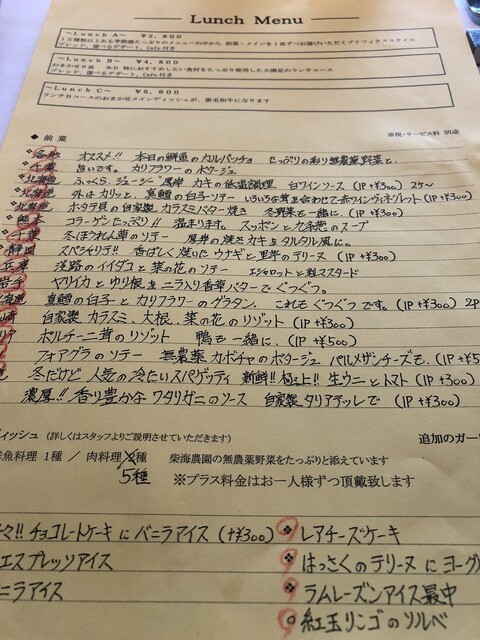 Lunch Menu
～Lunch A～ ￥2,800
15種類以上ある季節感たっぷりのメニューの中から 前菜・メインを1皿ずつお選びいただくプリフィクススタイル
ブレッド、選べるデザート、Cafe付き
～Lunch B～ ￥4,800
おまかせ6皿 本日特におすすめしたい食材をたっぷり使用した大満足のランチコース
ブレッド、選べるデザート、Cafe付き
～Lunch C～ ￥5,800
ランチBコースのおまかせメインディッシュが、黒毛和牛になります
◆ 前菜 ※税・サービス料 別途
各地 オススメ!! 本日の鮮魚のカルパッチョ たっぷりの彩り無農薬野菜と、
千葉 旨いです。カリフラワーのポタージュ
北海道 ふっくら、ジューシー 厚岸 カキの低温調理 白ワインソース (1P +¥300) 2P～
北海道 外はカリッと、真鱈の白子ソテー いろいろな茸を合わせて赤ワインヴィネグレット (1P +¥300)
北海道 ホタテ貝の自家製カラスミバター焼き 冬野菜も一緒に、(1P +¥300)
熊本 コラーゲンたっぷり!! 温まります。スッポンと九条葱のスープ
千葉 冬ほうれん草のソテー 厚岸の焼きカキとタルタル風に。
静岡 スペシャリテ!! 香ばしく焼いたウナギと里芋のテリーヌ (1P +¥300)
兵庫 淡路のイイダコと菜の花のソテー エシャロットと粒マスタード
岩手 ヤリイカとゆり根をニラ入り香草バターでぐつぐつ。
海道 真鱈の白子とカリフラワーのグラタン、これもぐつぐつです。(1P +¥300) 2P
崎 自家製カラスミ、大根、菜の花のリゾット (1P +¥300)
リア ポルチーニ茸のリゾット 鴨も一緒に、(1P +¥500)
フォアグラのソテー 無農薬カボチャのポタージュ パルメザンチーズも、(1P +¥5
冬だけど人気の冷たいスパゲッティ 新鮮!! 極上!! 生ウニとトマト (1P +300)
濃厚!! 香り豊かなワタリガニのソース 自家製タリアテッレで (1P +¥300)
ィッシュ (詳しくはスタッフよりご説明させていただきます) 追加のガー
魚料理 1種 / 肉料理 2種 柴海農園の無農薬野菜をたっぷりと添えています
5種 ※プラス料金はお一人様ずつ頂戴致します
々!! チョコレートケーキにバニラアイス (+¥300)
レアチーズケーキ
エスプレッソアイス
はっさくのテリーヌにヨーグ
ニラアイス
ラムレーズンアイス最中
紅玉りんごのソルベ